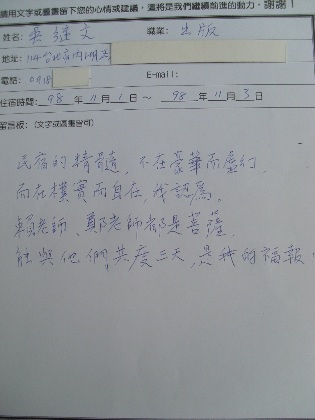 請用文字或畫畫留下您的心情或建議，這將是我們繼續前進的動力，謝謝！
姓名：吳繼文 職業：出版
地址：114台北市內湖區
電話：0918 E-mail：
住宿時間：98年11月1日～98年11月3日
留言板：(文字或畫畫皆可)
民宿的精髓，不在豪華而虛幻，
而在樸實而自在，我認為。
賴老師、鄭老師都是菩薩，
能與他們共度三天，是我的福報！